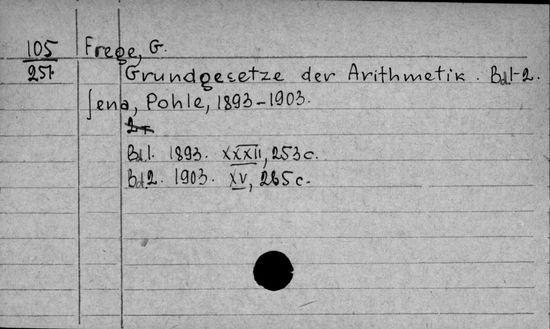 105 Frege, G.
251. Grundgesetze der Arithmetik. Bd.1-2.
Jena, Pohle, 1893-1903.
Bd.1. 1893. XXXII, 253 c.
Bd.2. 1903. XV, 265 c.